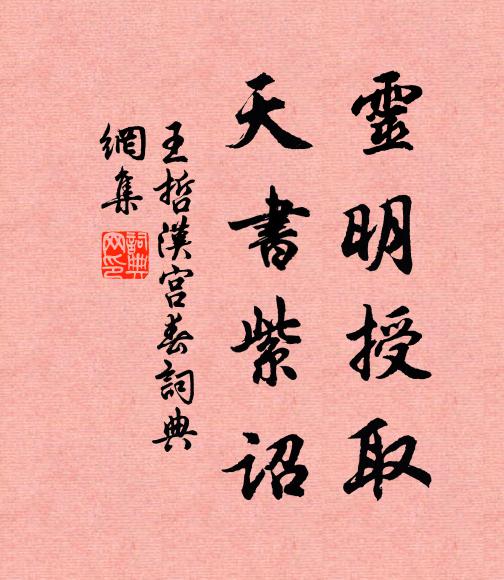 靈明授取
天書紫詔
王哲漢宮春詞典
網集
詞典網印